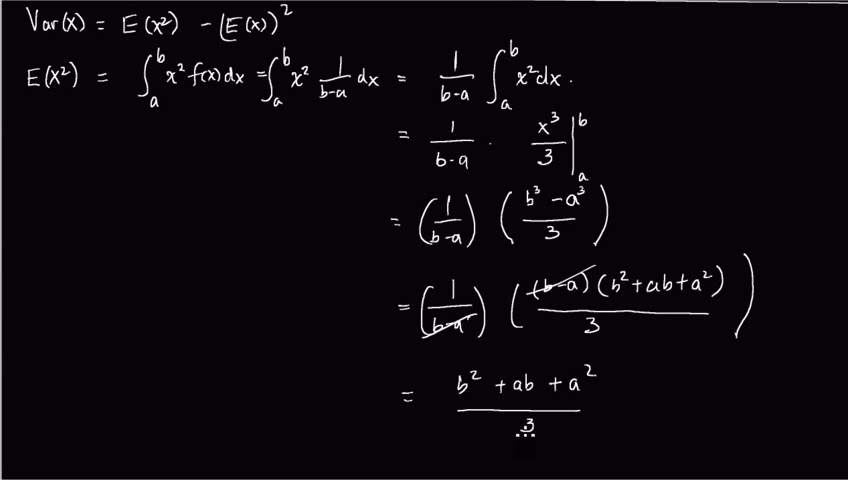 Var(x) = E(x²) - (E(x))²
E(x²) = ∫_a^b x² f(x) dx = ∫_a^b x² 1/(b-a) dx = 1/(b-a) ∫_a^b x² dx.
= 1/(b-a) · x³/3 |_a^b
= (1/(b-a)) ((b³ - a³)/3)
= (1/(b-a)) ((b-a)(b² + ab + a²)/3)
= (b² + ab + a²)/3